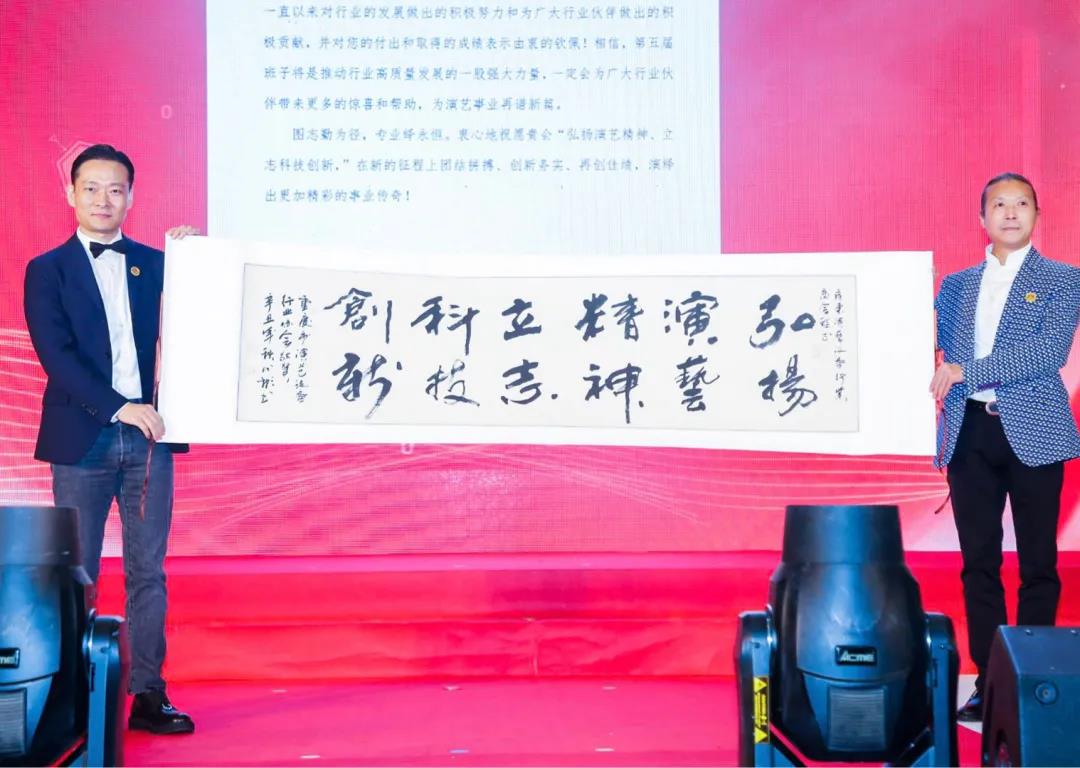 一直以来对行业的发展做出的积极努力和为广大行业伙伴做出的积
极贡献，并对您的付出和取得的成绩表示由衷的钦佩！相信，第五届
班子将是推动行业高质量发展的一股强大力量，一定会为广大行业伙
伴带来更多的惊喜和帮助，为演艺事业再谱新篇。
图志勤为径，专业绎永恒。衷心地祝愿贵会“弘扬演艺精神、立
志科技创新，”在新的征程上团结拼搏、创新务实、再创佳绩，演绎
出更加精彩的事业传奇！
弘揚
演藝
精神
立志
科技
創新
重庆市演艺设备
行业协会敬贺
辛丑年秋
ACME